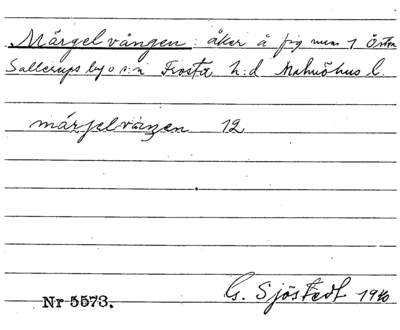 Märgelvången: åker å fig num 1 Östra
Sallerups by o s:n Frosta h:d Malmöhus l.
märjelvången 12
Nr 5573.
G. Sjöstedt 1940